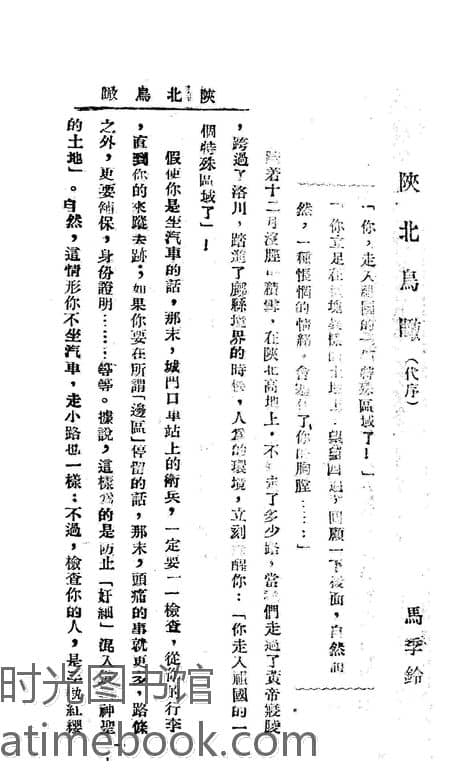 陝北鳥瞰
陝北鳥瞰（代序）
馬季鈴
「你，走入祖國的一個特殊區域了！」
「你立足在這塊
望望四週，回顧一下後面，自然而
然，一種悵惘的情緒，會
了你的胸膛……」
着十二月沒脛的積雪，在陝北高地上，不
了多少路，當我們走過了黃帝寢陵
，跨過了洛川，踏進了鄜縣境界的時候，人為的環境，立刻
醒你：「你走入祖國的一
個特殊區域了」！
假使你是坐汽車的話，那末，城門口車站上的衛兵，一定要一一檢查，從你的行李
，直到你的來蹤去跡；如果你要在所謂「邊區」停留的話，那末，頭痛的事就更多，路條
之外，更要鋪保，身份證明……等等。據說，這樣為的是防止「奸細」混入
神聖
的土地」。自然，這情形你不坐汽車，走小路也一樣：不過，檢查你的人，是
紅纓
1
时光图书馆
atimebook.com